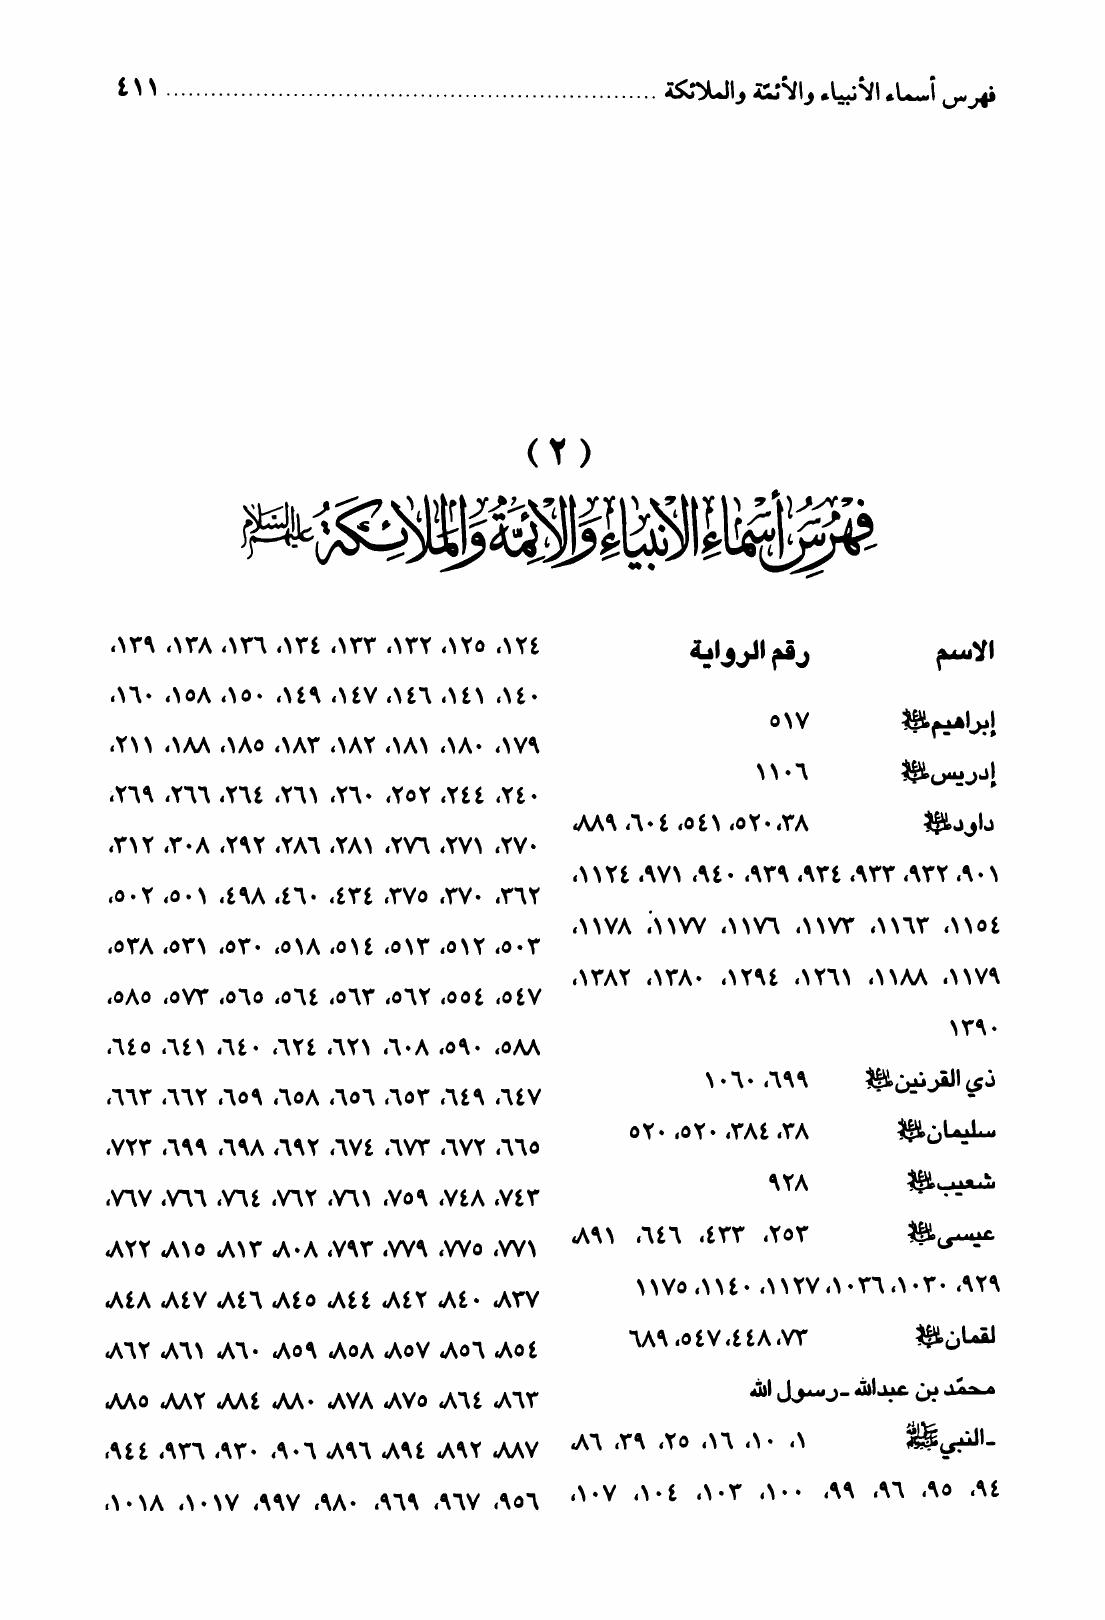 فهرس أسماء الأنبياء والأئمّة والملائكة ................................................................ ٤١١
( ٢ )
فِهْرِسُ أَسْمَاءِ الأَنبِيَاءِ وَالأَئِمَّةِ وَالْمَلائِكَةِ عليهم السلام
الاسم رقم الرواية
إبراهيم عليه السلام ٥١٧
إدريس عليه السلام ١١٠٦
داود عليه السلام ٣٨، ٥٢٠، ٥٤١، ٦٠٤، ٨٨٩،
٩٠١، ٩٣٢، ٩٣٣، ٩٣٤، ٩٣٩، ٩٤٠، ٩٧١، ١١٢٤،
١١٥٤، ١١٦٣، ١١٧٣، ١١٧٦، ١١٧٧، ١١٧٨،
١١٧٩، ١١٨٨، ١٢٦١، ١٢٩٤، ١٣٨٠، ١٣٨٢،
١٣٩٠
ذي القرنين عليه السلام ٦٩٩، ١٠٦٠
سليمان عليه السلام ٣٨، ٣٨٤، ٥٢٠، ٥٢٠
شعيب عليه السلام ٩٢٨
عيسى عليه السلام ٢٥٣، ٤٣٣، ٦٤٦، ٨٩١،
٩٢٩، ١٠٣٠، ١٠٣٦، ١١٢٧، ١١٤٠، ١١٧٥
لقمان عليه السلام ٧٣، ٤٤٨، ٥٤٧، ٦٨٩
محمّد بن عبدالله ـ رسول الله
ـ النبي ﷺ ١، ١٠، ١٦، ٢٥، ٣٩، ٨٦،
٩٤، ٩٥، ٩٦، ٩٩، ١٠٠، ١٠٣، ١٠٤، ١٠٧،
١٢٤، ١٢٥، ١٣٢، ١٣٣، ١٣٤، ١٣٦، ١٣٨، ١٣٩،
١٤٠، ١٤١، ١٤٦، ١٤٧، ١٤٩، ١٥٠، ١٥٨، ١٦٠،
١٧٩، ١٨٠، ١٨١، ١٨٢، ١٨٣، ١٨٥، ١٨٨، ٢١١،
٢٤٠، ٢٤٤، ٢٥٢، ٢٦٠، ٢٦١، ٢٦٤، ٢٦٦، ٢٦٩،
٢٧٠، ٢٧١، ٢٧٦، ٢٨١، ٢٨٦، ٢٩٢، ٣٠٨، ٣١٢،
٣٦٢، ٣٧٠، ٣٧٥، ٤٣٤، ٤٦٠، ٤٩٨، ٥٠١، ٥٠٢،
٥٠٣، ٥١٢، ٥١٣، ٥١٤، ٥١٨، ٥٣٠، ٥٣١، ٥٣٨،
٥٤٧، ٥٥٤، ٥٦٢، ٥٦٣، ٥٦٤، ٥٦٥، ٥٧٣، ٥٨٥،
٥٨٨، ٥٩٠، ٦٠٨، ٦٢١، ٦٢٤، ٦٤٠، ٦٤١، ٦٤٥،
٦٤٧، ٦٤٩، ٦٥٣، ٦٥٦، ٦٥٨، ٦٥٩، ٦٦٢، ٦٦٣،
٦٦٥، ٦٧٢، ٦٧٣، ٦٧٤، ٦٩٢، ٦٩٨، ٦٩٩، ٧٢٣،
٧٤٣، ٧٤٨، ٧٥٩، ٧٦١، ٧٦٢، ٧٦٤، ٧٦٦، ٧٦٧،
٧٧١، ٧٧٥، ٧٧٩، ٧٩٣، ٨٠٨، ٨١٣، ٨١٥، ٨٢٢،
٨٣٧، ٨٤٠، ٨٤٢، ٨٤٤، ٨٤٥، ٨٤٦، ٨٤٧، ٨٤٨،
٨٥٤، ٨٥٦، ٨٥٧، ٨٥٨، ٨٥٩، ٨٦٠، ٨٦١، ٨٦٢،
٨٦٣، ٨٦٤، ٨٧٥، ٨٧٨، ٨٨٠، ٨٨٤، ٨٨٢، ٨٨٥،
٨٨٧، ٨٩٢، ٨٩٤، ٨٩٦، ٩٠٦، ٩٣٠، ٩٣٦، ٩٤٤،
٩٥٦، ٩٦٧، ٩٦٩، ٩٨٠، ٩٩٧، ١٠١٧، ١٠١٨،